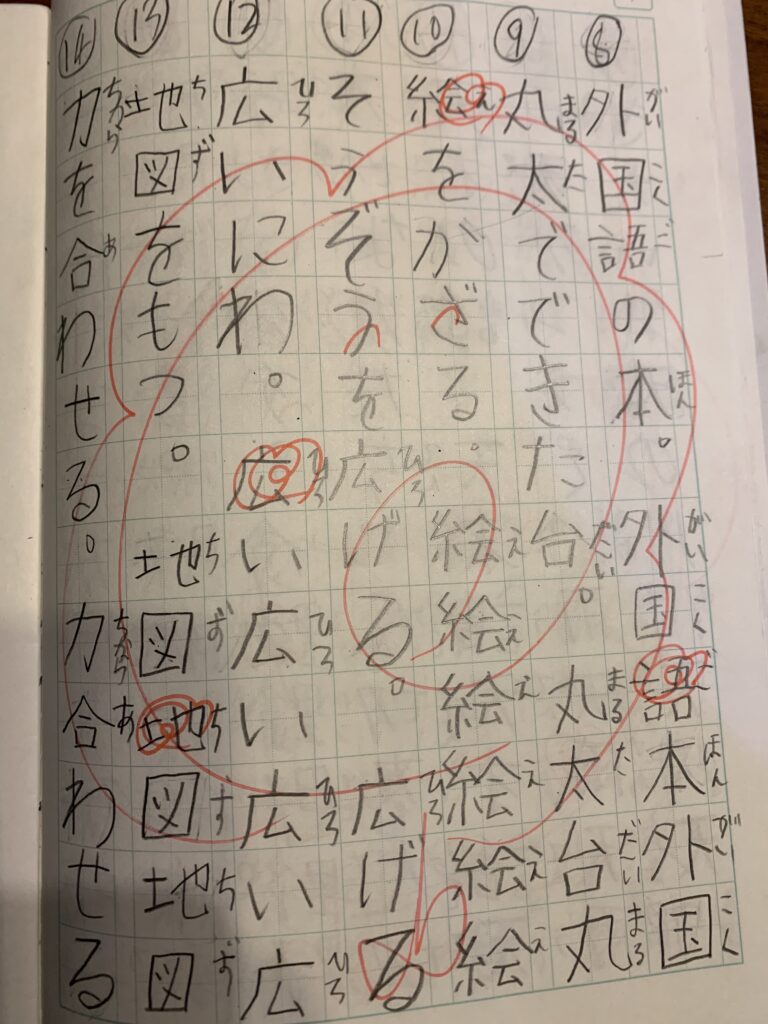 ⑧外国語の本。外国語本外国
がいこくごほんがいこくごほんがいこく
⑨丸太でできた台。丸太台丸
まるただいまるただいまる
⑩絵をがざる。絵絵絵絵絵絵
ええええええ え
⑪そうぞうを広げる。広げる
ひろひろ
⑫広いにわ。広い広い広い広
ひろひろひろひろひろ
⑬地図をもつ。地図地図地図
ちずちずちずちず
⑭力を合わせる。力合わせる
ちからあちからあ